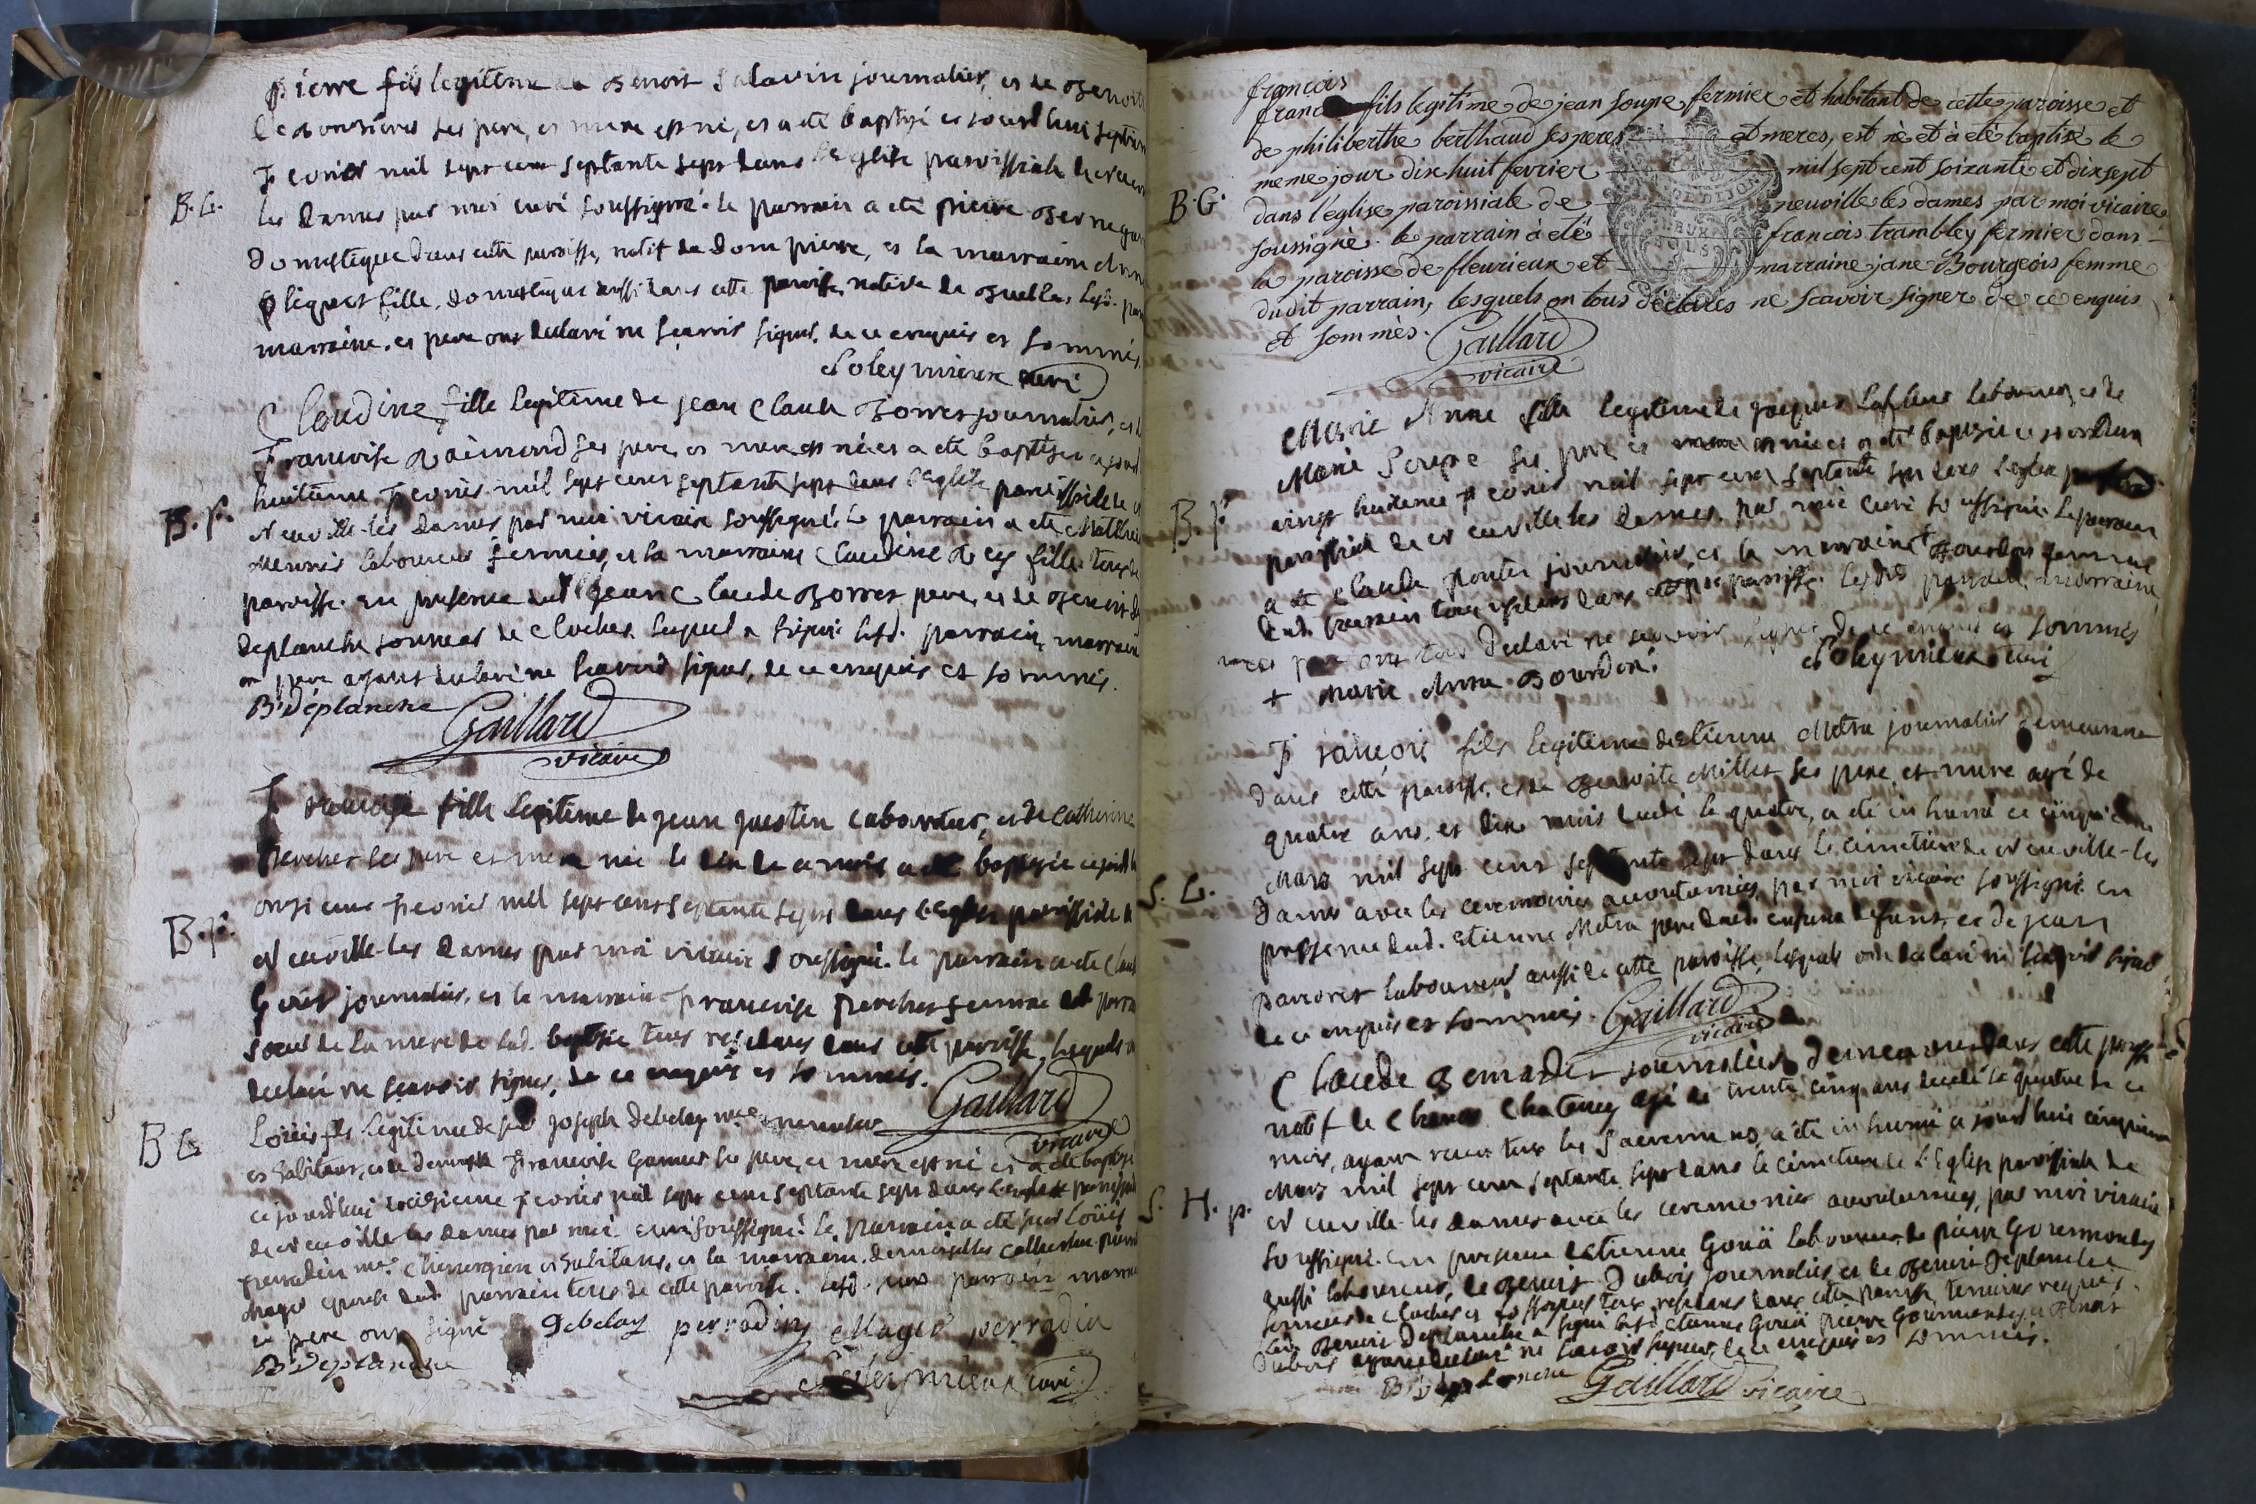 pierre fils legitime de Benoit Salavin journalier, et de Benoite
ses pere, et mere est né, et a été baptisé ce jourd'huy septieme
Fevrier mil sept cent septante sept dans l'Eglise paroissiale de Neuville
B. G.
les Dames par moi curé soussigné. le parrain a été pierre
Domestique dans cette paroisse, natif de Dompierre, et la marraine
pliquet fille, domestique aussi dans cette paroisse, native de Buellas. Lesd.
marraine, et pere ont declaré ne scavoir signer, de ce enquis et sommés.
Poleymieux curé
Claudine fille legitime de jean Claude Borret journalier, et de
Francoise Raimond ses pere, et mere est née et a été baptisée ce jourd
huitieme Fevrier mil sept cent septante sept dans l'Eglise paroissiale de
B. f.
Neuville-les Dames par moi vicaire soussigné. Le parrain a été Mathieu
Meunier laboureur fermier, et la marraine Claudine Rey fille tous de
paroisse. en presence dud. Jean Claude Borret pere, et de Benoit
Deplanche sonneur de Cloches lequel a signé. lesd. parrain, marraine
et pere ayant declaré ne scavoir signer, de ce enquis et sommés.
B. Déplanche
Gaillard
vicaire
Francoise fille legitime de jean justin laboureur, et de Catherine
Perchet ses pere et mere née le dix de ce mois a été baptisée ce jourd
onzieme Fevrier mil sept cent septante sept dans l'Eglise paroissiale de
B. f.
Neuville-les Dames par moi vicaire soussigné. le parrain a été Claude
journalier, et la marraine Francoise Perchet femme du parrain
soeur de la mere de lad. baptisée tous residans dans cette paroisse, lesquels
declaré ne scavoir signer, de ce enquis et sommés.
Gaillard
vicaire
B G
Loüis fils legitime de sieur joseph Debelay
et habitant, et de demoiselle Francoise ses pere, et mere est né et a été baptisé
ce jourd'hui treizieme Fevrier mil sept cent septante sept dans l'Eglise paroissiale
de Neuville les Dames par moi curé soussigné. le parrain a été sieur Loüis
perradin Chirurgien et habitans, et la marraine demoiselle
Magé epouse dud. parrain tous de cette paroisse. parrain marraine
et pere ont signé Debelay perradin Magé perradin
B. Deplanche
Poleymieux curé
françois
fils legitime de jean soupe fermier et habitant de cette paroisse et
de philiberthe berthaud ses peres et meres, est nè et à etè baptisè le
meme jour dix huit fevrier mil sept cent soixante et dix sept
B. G.
dans l'eglise paroissiale de neuville les dames par moi vicaire
soussignè. le parrain à etè françois trambley fermier dans
la paroisse de fleurieux et marraine jane Bourgeois femme
dudit parrain, lesquels on tous déclarès ne scavoir signer de ce enquis
et sommès.
Gaillard
vicaire
Marie Anne fille legitime de jacques laboureur, et de
Marie Soupe ses pere, et mere est née et a été baptisée ce jourdhui
vingt huitieme Fevrier mil sept cent septante sept dans l'eglise
B. f.
paroissiale de Neuville les Dames par moi curé soussigné. Le parrain
a été Claude Ponter journalier, et la marraine + Bourdon femme
dud. parrain tous residans dans cette paroisse. Lesdts parrain, marraine,
et pere ont tous declaré ne scavoir signer de ce enquis et sommés
+ Marie Anne Bourdon.
Poleymieux curé
François fils legitime d'estienne Metra journalier demeurant
dans cette paroisse, et de Benoite Millet ses pere, et mere agé de
quatre ans, et dix mois decedé le quatre, a été inhumé ce cinquieme
Mars mil sept cent septante sept dans le cimetiere de Neuville-les
S. G.
Dames avec les ceremonies accoutumées, par moi vicaire soussigné. en
presence dud. Etienne Metra pere dud. enfant defunt, et de jean
laboureur aussi de cette paroisse, lesquels ont declaré ne scavoir signer
de ce enquis et sommés.
Gaillard
vicaire
Claude journalier demeurant dans cette paroisse
natif de Chatenay agé de trente cinq ans decedé le quatre de ce
mois, ayant reçu tous les Sacremens, a été inhumé ce jourd'hui cinquieme
Mars mil sept cent septante sept dans le cimetiere de l'Eglise paroissiale de
S. H. p.
Neuville-les Dames avec les ceremonies accoutumées, par moi vicaire
soussigné. En presence d'etienne Goüä laboureur, de pierre Gourmondy
aussi laboureur, de Benoit Dubois journalier, et de Benoit Deplanche
sonneur de Cloches et fossoyeur tous residans dans cette paroisse temoins requis.
Led. Benoit Deplanche a signé lesd. Etienne Goüä pierre Gourmondy et Benoit
Dubois ayant declaré ne scavoir signer, de ce enquis et sommés.
B. Déplanche
Gaillard vicaire